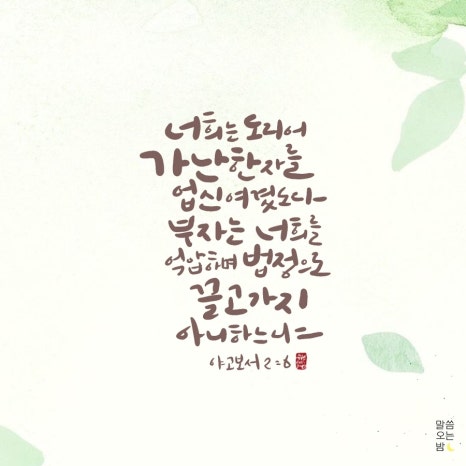 너희는 도리어
가난한 자를
업신여겼도다
부자는 너희를
억압하며 법정으로
끌고 가지
아니하느냐
야고보서 2:6
말씀
오는
밤